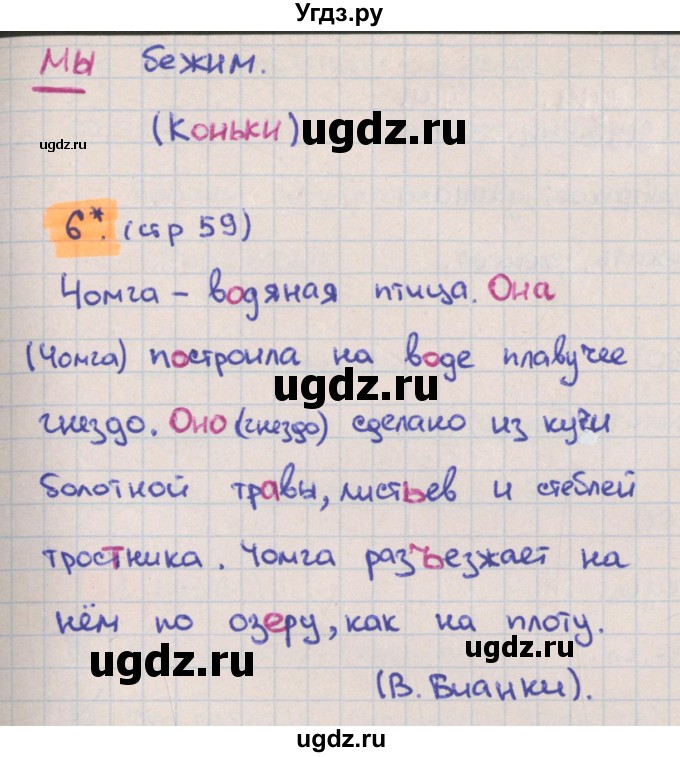 Угдз.ру
Мы бежим.
ugdz.ru
(Коньки) ugdz.ru
6*. (стр 59)
Чомга – водяная птица. Она
(Чомга) построила на воде плавучее
ugdz.ru
гнездо. Оно (гнездо) сделано из кучи
ugdz.ru
болотной травы, листьев и стеблей
тростника. Чомга разъезжает на
нём по озеру, как на плоту.
ugdz.ru
(В. Бианки).
ugdz.ru
ugdz.ru